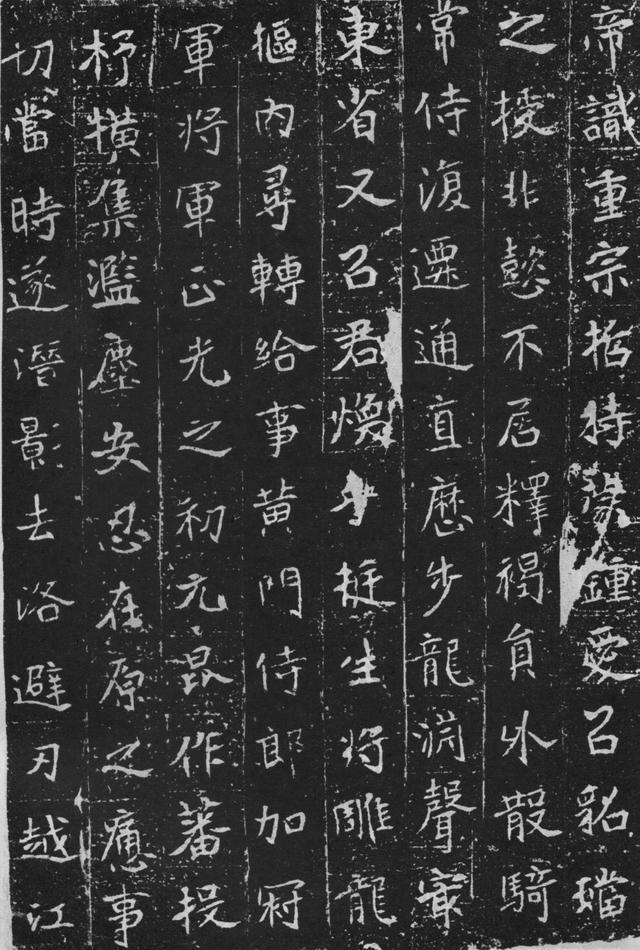 帝識重宗哲特蒙鍾愛以貂璫
之授非懿不居釋褐員外散騎
常侍復遷通直歷步龍淵聲㝡
東省又以君煥才挺生將雕龍
樞內尋轉給事黃門侍郎加冠
軍將軍正光之初元昆作蕃投
杼橫集濫塵安忍在原之應事
切當時遂潛影去洛避刃越江